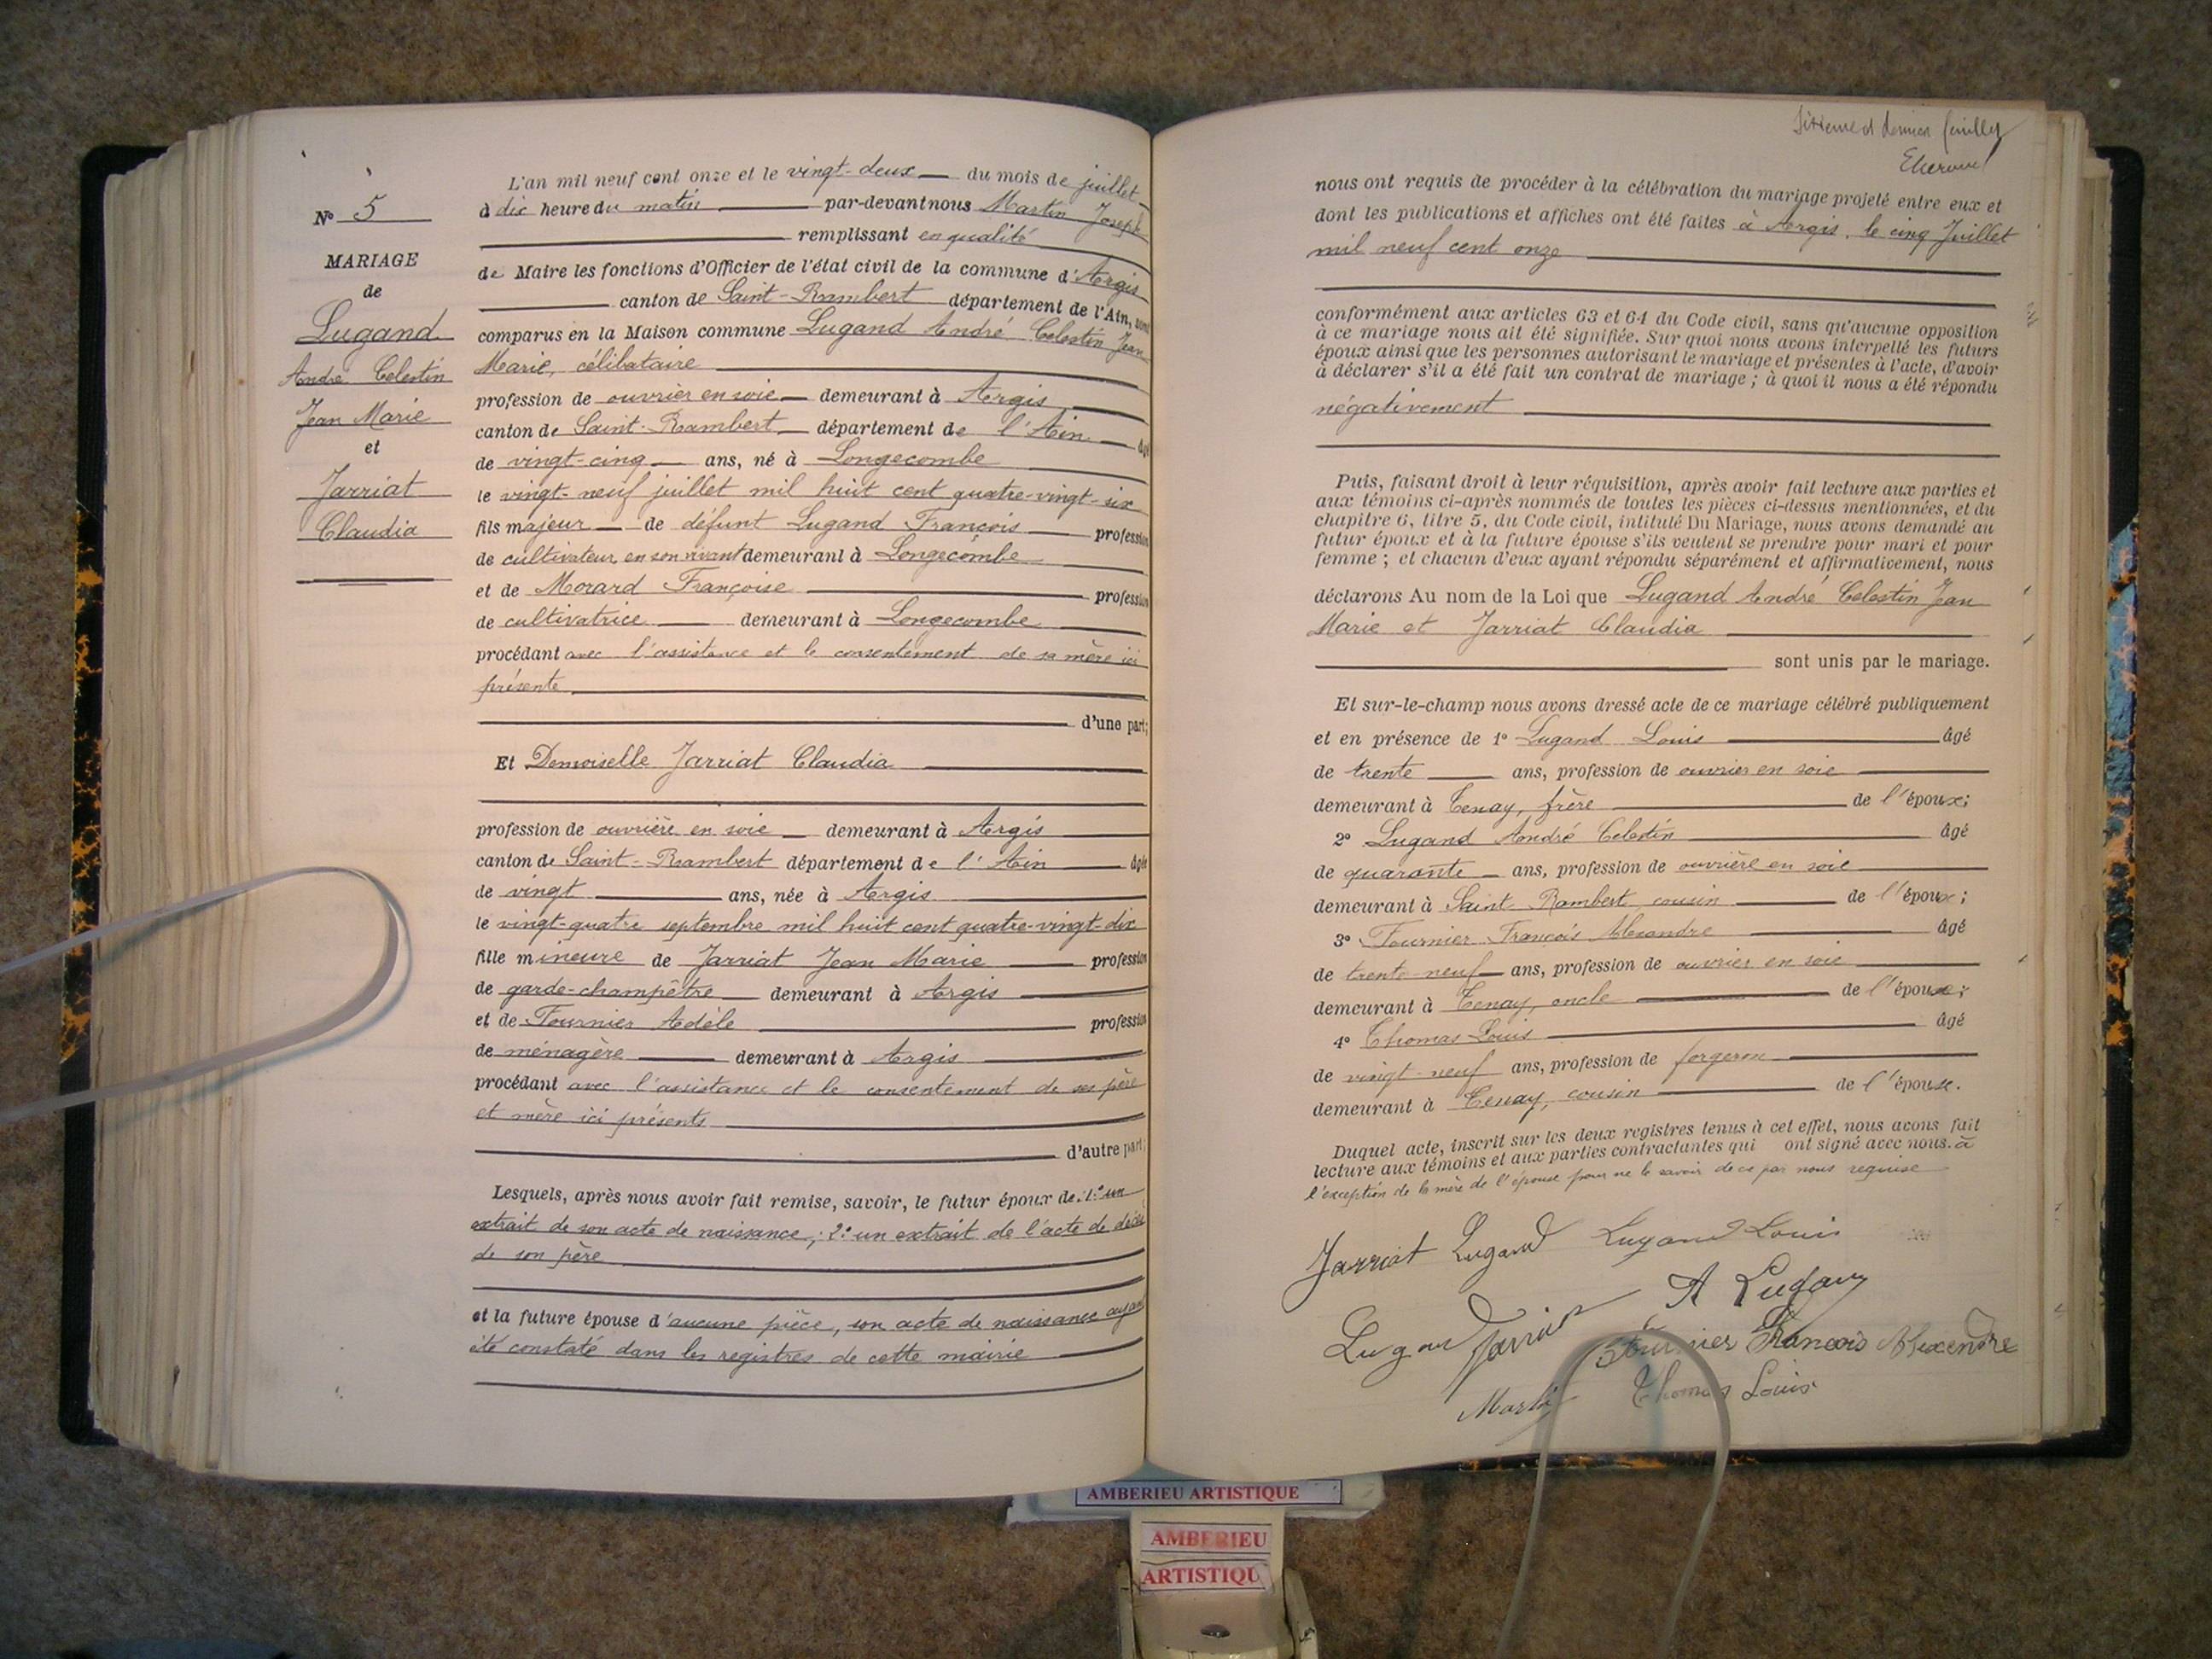 N° 5
MARIAGE
de
Lugand
André Celestin
Jean Marie
et
Jarriat
Claudia
L'an mil neuf cent onze et le vingt-deux du mois de juillet
à dix heure du matin par-devant nous Martin Joseph
remplissant en qualité
de Maire les fonctions d'Officier de l'état civil de la commune d'Argis
canton de Saint-Rambert département de l'Ain, sont
comparus en la Maison commune Lugand André Celestin Jean
Marie, célibataire
profession de ouvrier en soie demeurant à Argis
canton de Saint-Rambert département de l'Ain âgé
de vingt-cinq ans, né à Longecombe
le vingt-neuf juillet mil huit cent quatre-vingt-six
fils majeur de défunt Lugand François profession
de cultivateur, en son vivant demeurant à Longecombe
et de Morard Françoise profession
de cultivatrice demeurant à Longecombe
procédant avec l'assistance et le consentement de sa mère ici
présente
d'une part;
Et Demoiselle Jarriat Claudia
profession de ouvrière en soie demeurant à Argis
canton de Saint-Rambert département de l'Ain âgée
de vingt ans, née à Argis
le vingt-quatre septembre mil huit cent quatre-vingt-dix
fille mineure de Jarriat Jean Marie profession
de garde-champêtre demeurant à Argis
et de Fournier Adèle profession
de ménagère demeurant à Argis
procédant avec l'assistance et le consentement de ses père
et mère ici présents
d'autre part;
Lesquels, après nous avoir fait remise, savoir, le futur époux de 1° un
extrait de son acte de naissance; 2° un extrait de l'acte de décès
de son père
et la future épouse d'aucune pièce, son acte de naissance ayant
été constaté dans les registres de cette mairie
Sixième et dernier feuillet
nous ont requis de procéder à la célébration du mariage projeté entre eux et
dont les publications et affiches ont été faites à Argis, le cinq Juillet
mil neuf cent onze
conformément aux articles 63 et 64 du Code civil, sans qu'aucune opposition
à ce mariage nous ait été signifiée. Sur quoi nous avons interpellé les futurs
époux ainsi que les personnes autorisant le mariage et présentes à l'acte, d'avoir
à déclarer s'il a été fait un contrat de mariage; à quoi il nous a été répondu
négativement
Puis, faisant droit à leur réquisition, après avoir fait lecture aux parties et
aux témoins ci-après nommés de toutes les pièces ci-dessus mentionnées, et du
chapitre 6, titre 5, du Code civil, intitulé Du Mariage, nous avons demandé au
futur époux et à la future épouse s'ils veulent se prendre pour mari et pour
femme; et chacun d'eux ayant répondu séparément et affirmativement, nous
déclarons Au nom de la Loi que Lugand André Celestin Jean
Marie et Jarriat Claudia
sont unis par le mariage.
Et sur-le-champ nous avons dressé acte de ce mariage célébré publiquement
et en présence de 1° Lugand Louis âgé
de trente ans, profession de ouvrier en soie
demeurant à Tenay, frère de l'époux;
2° Lugand André Celestin âgé
de quarante ans, profession de ouvrière en soie
demeurant à Saint-Rambert cousin de l'époux;
3° Fournier François Alexandre âgé
de trente-neuf ans, profession de ouvrier en soie
demeurant à Tenay, oncle de l'épouse;
4° Thomas Louis âgé
de vingt-neuf ans, profession de forgeron
demeurant à Tenay, cousin de l'épouse.
Duquel acte, inscrit sur les deux registres tenus à cet effet, nous avons fait
lecture aux témoins et aux parties contractantes qui ont signé avec nous. à
l'exception de la mère de l'épouse pour ne le savoir de ce par nous requise
Jarriat Lugand Lugand Louis
A Lugand
Lugand Jarriat Fournier François Alexendre
Martin Thomas Louis
AMBERIEU ARTISTIQUE
AMBERIEU
ARTISTIQU